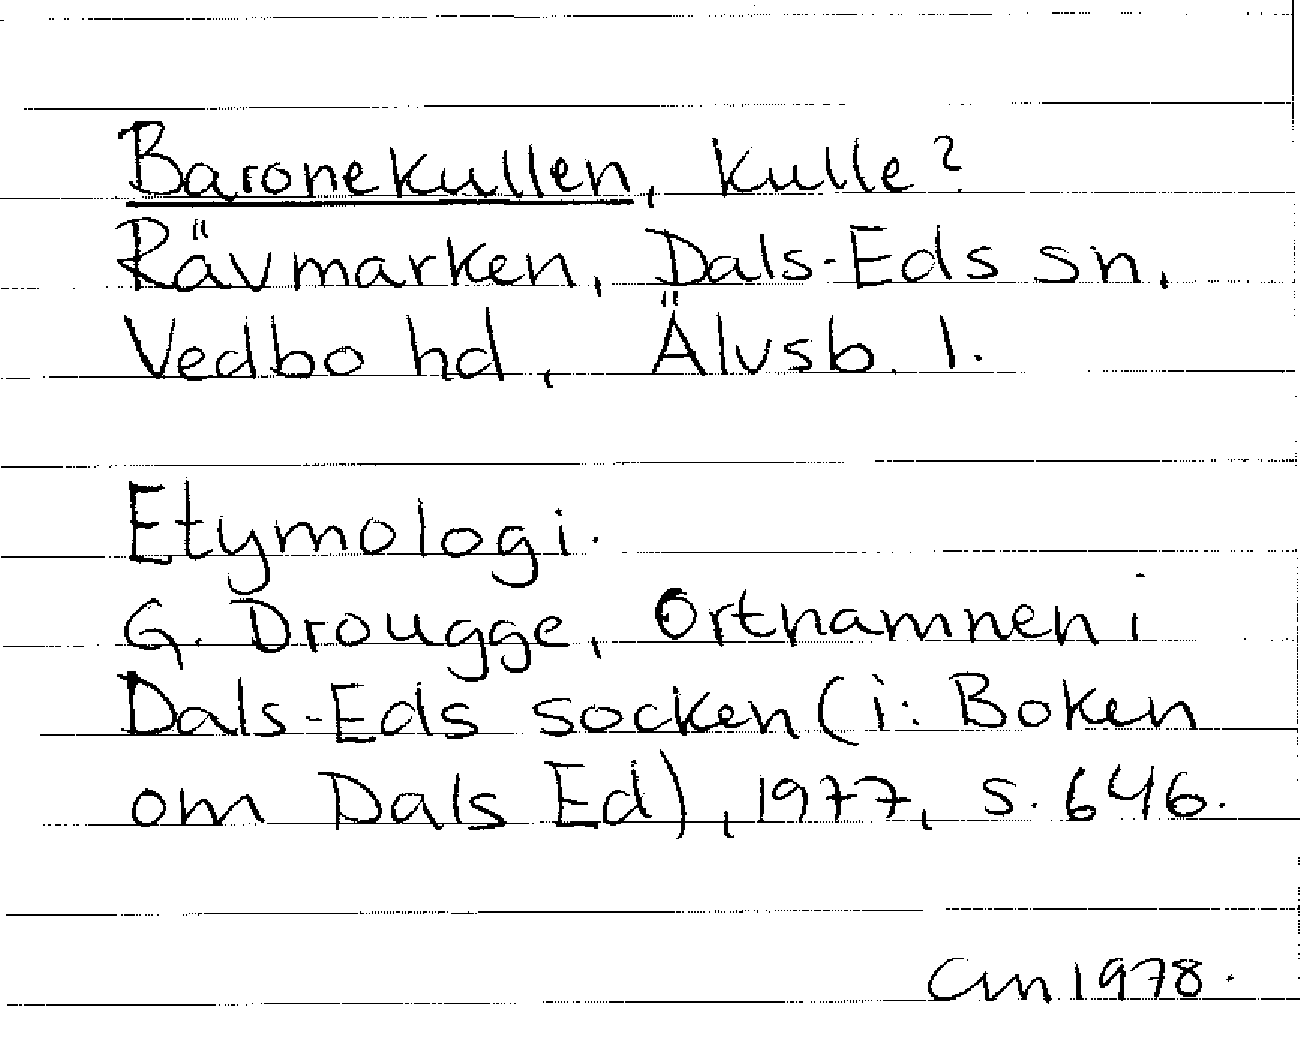 Baronekullen, kulle?
Rävmarken, Dals-Eds sn,
Vedbo hd, Älvsb. l.
Etymologi.
G. Drougge, Ortnamnen i
Dals-Eds socken (i: Boken
om Dals Ed), 1977, s. 646.
CM 1978.